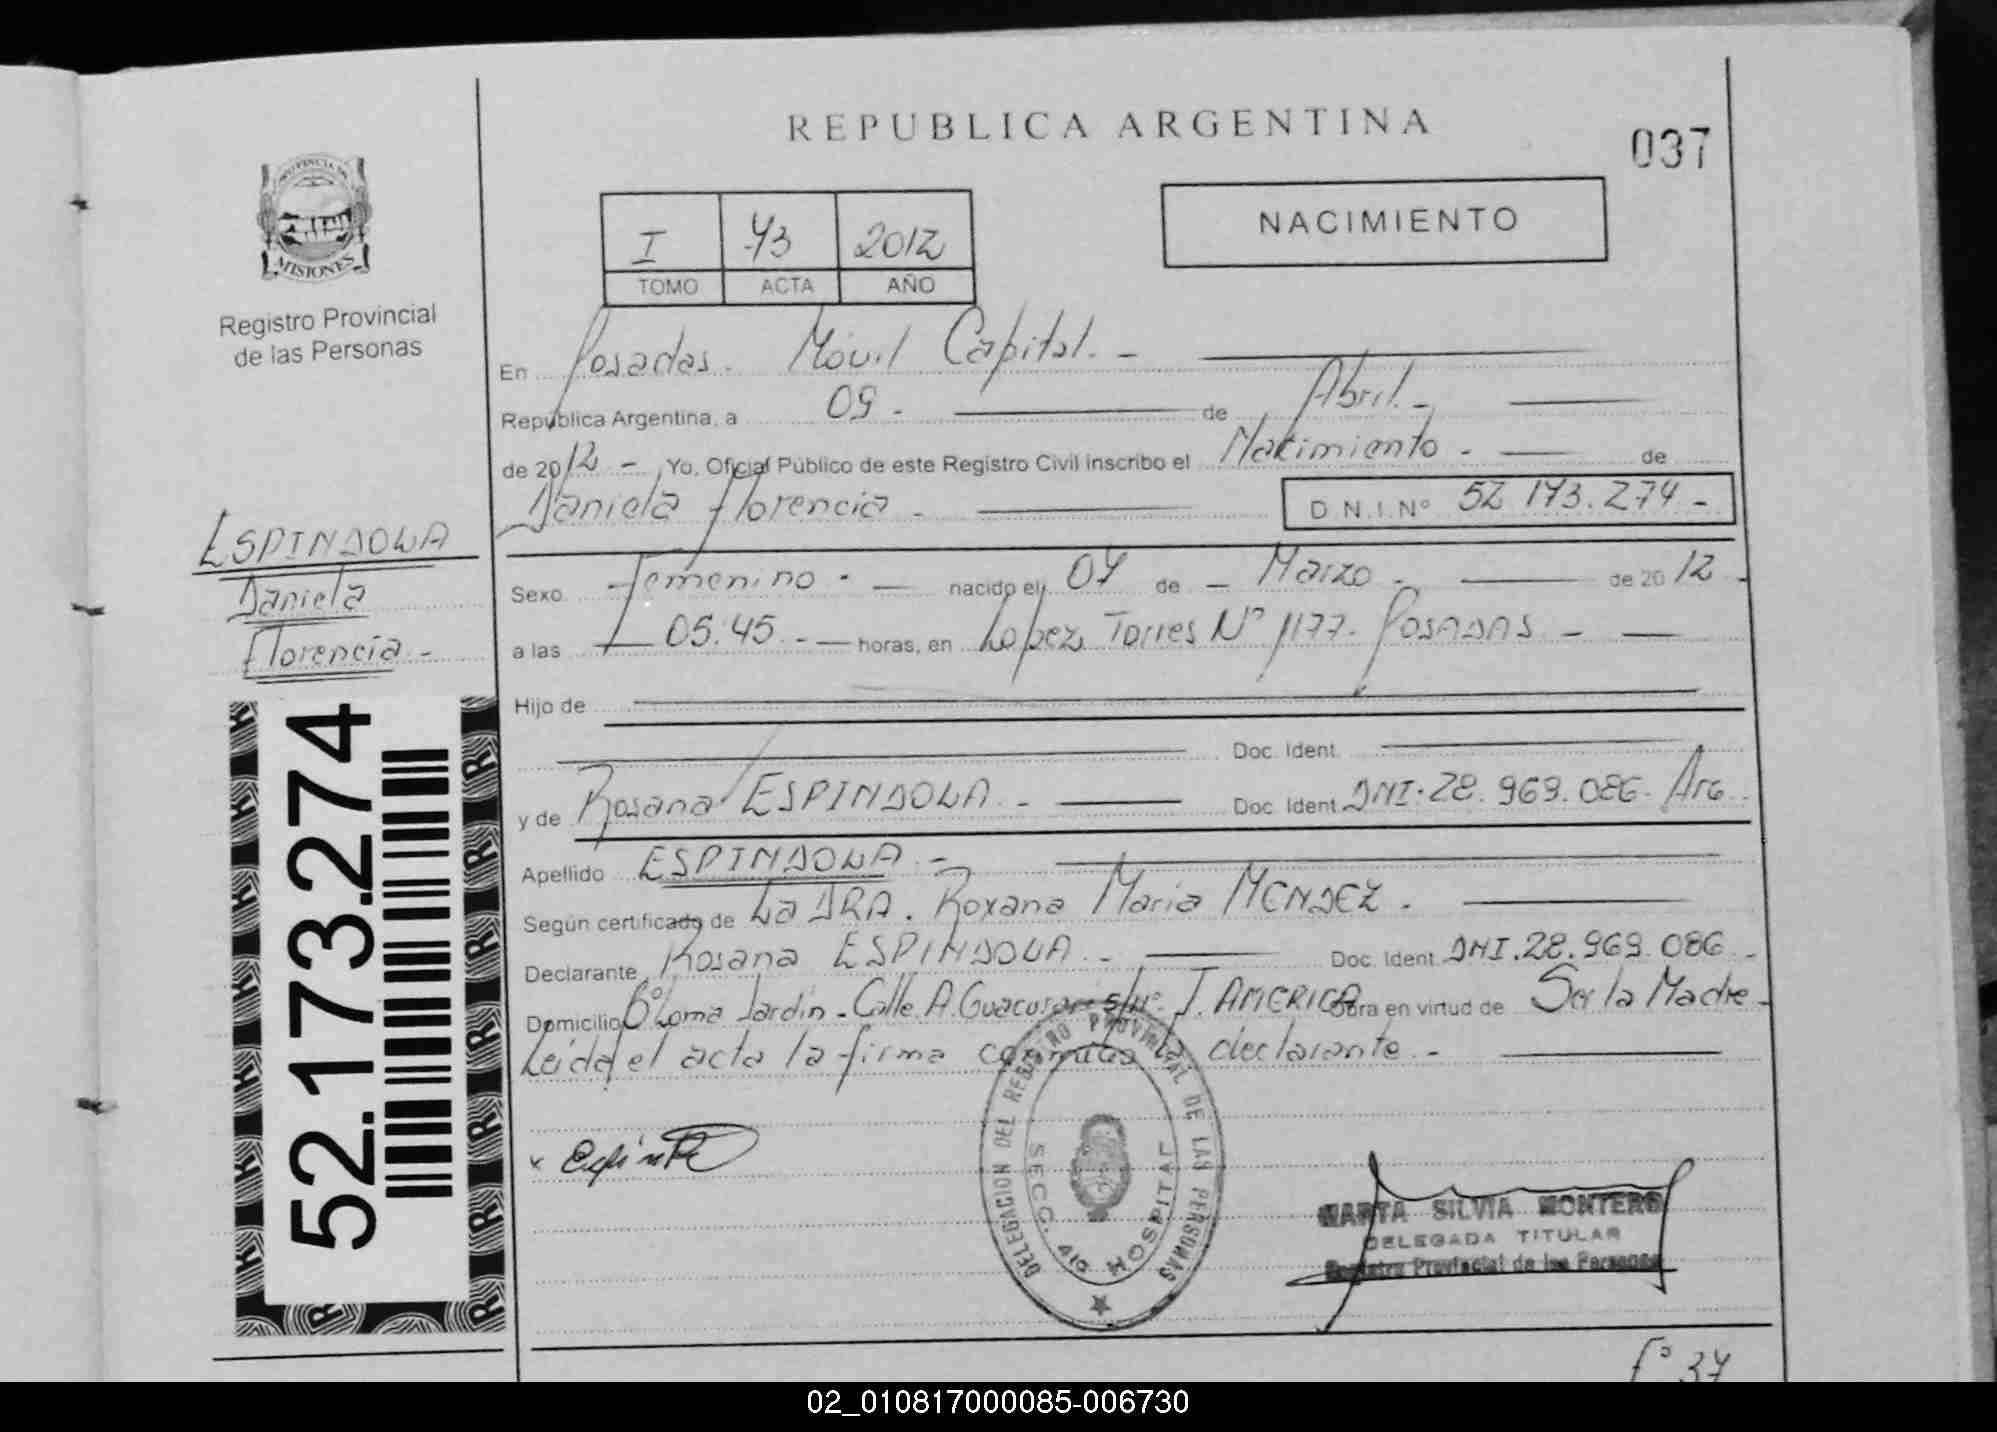 REPUBLICA ARGENTINA
037
PROVINCIA DE
MISIONES
Registro Provincial
de las Personas
I 73 2012
TOMO ACTA AÑO
NACIMIENTO
En Posadas. Móvil Capital. -
República Argentina, a 09 - de Abril. -
de 2012 - Yo, Oficial Público de este Registro Civil inscribo el Nacimiento - de
Daniela Florencia - D.N.I.Nº 52 173.274 -
ESPINDOLA
Daniela
Florencia -
Sexo Femenino - nacido el 07 de - Marzo - de 2012 -
a las 05:45 - horas, en Lopez Torres Nº 1177- POSADAS -
Hijo de
Doc. Ident.
y de Rosana ESPINDOLA - Doc. Ident. DNI.28.969.086- Arg.
Apellido ESPINDOLA -
Según certificado de La DRA. Roxana Maria MENDEZ.
Declarante Rosana ESPINDOLA - Doc. Ident. DNI.28.969.086 -
Domicilio Bº Loma Jardin - Calle A. Guacurari s/nº. J. AMERICA Obra en virtud de Ser la Madre -
Leida el acta la firma conmigo la declarante. -
52.173.274
DELEGACION DEL REGISTRO PROVINCIAL DE LAS PERSONAS
SECC. 4ta HOSPITAL
MARTA SILVIA MONTERO
DELEGADA TITULAR
Registro Provincial de las Personas
Fº 37
02_010817000085-006730